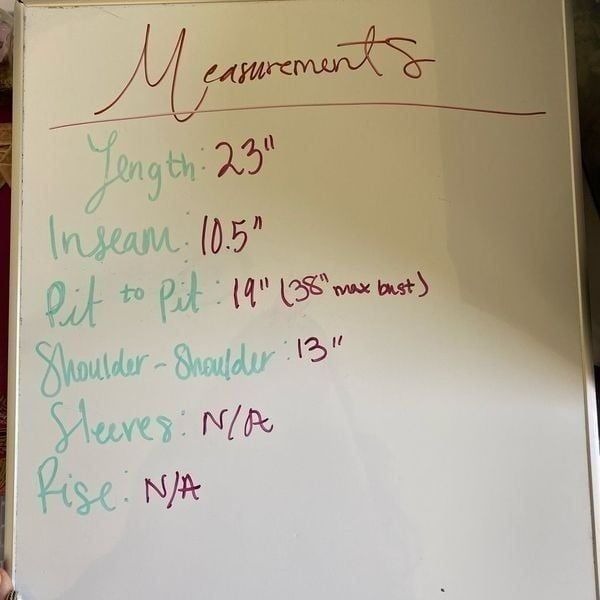 Measurements
Length: 23"
Inseam: 10.5"
Pit to Pit: 19" (38" max bust)
Shoulder-Shoulder: 13"
Sleeves: N/A
Rise: N/A